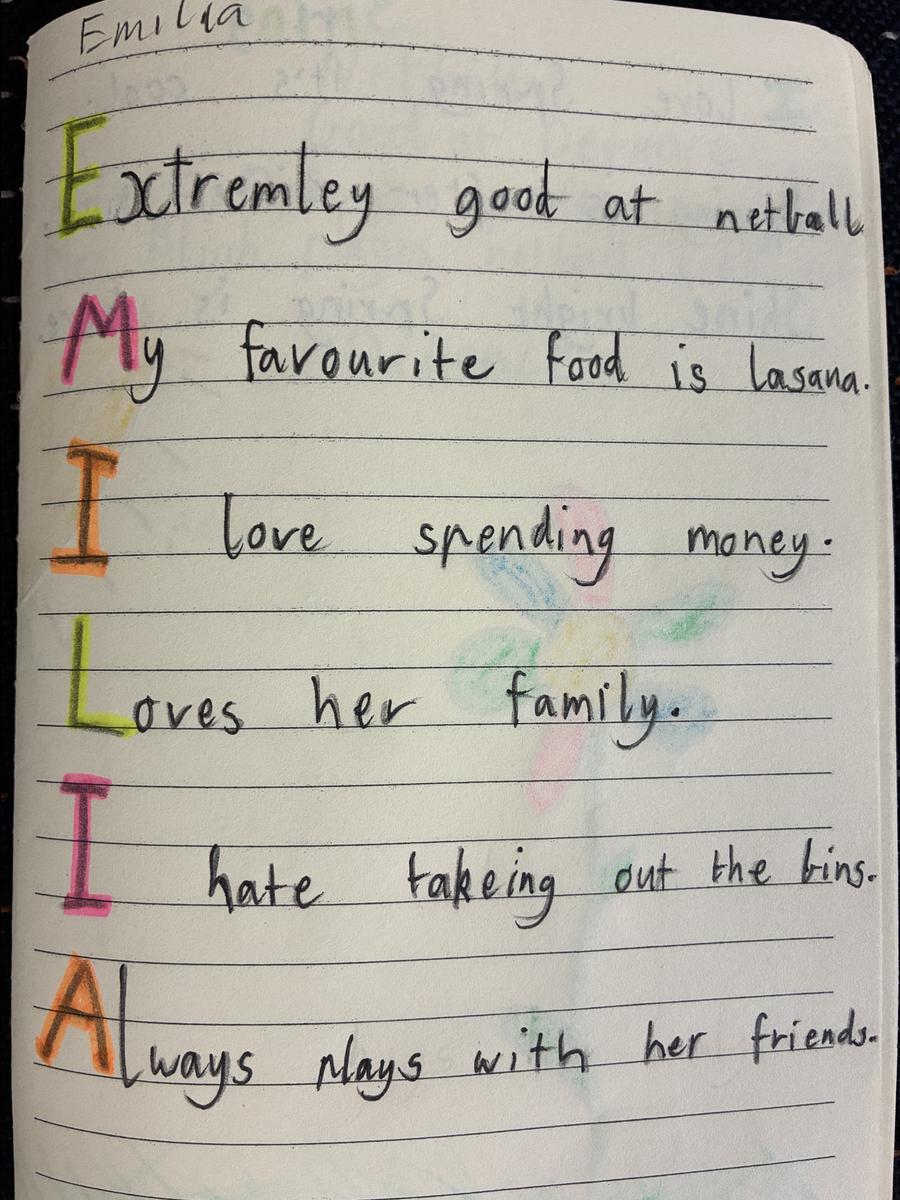 Emilia
Extremley good at netball
My favourite food is lasana.
I love spending money.
Loves her family.
I hate takeing out the bins.
Always plays with her friends.